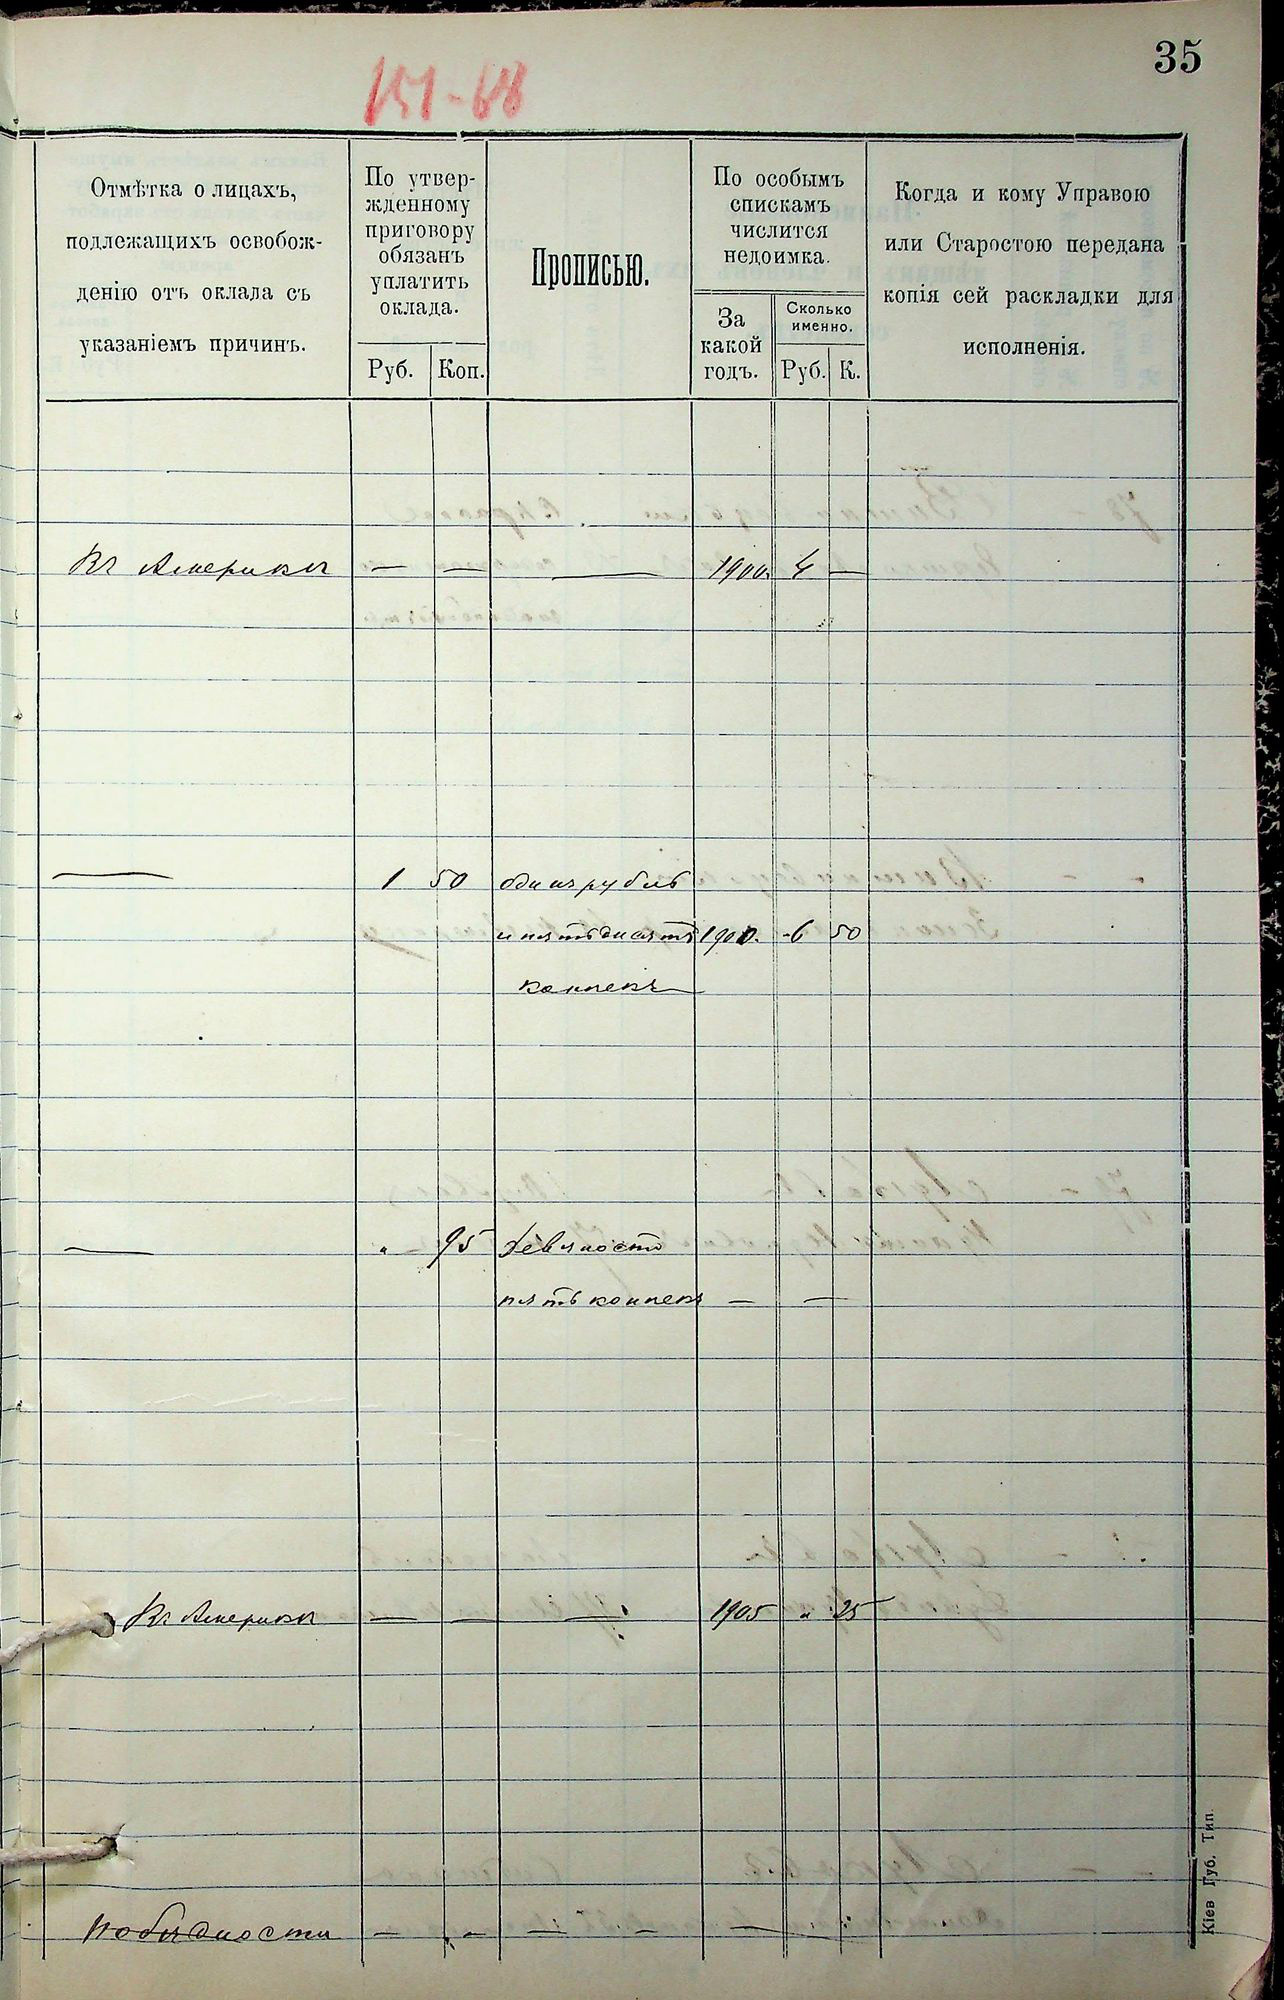 35
151-68
Отмѣтка о лицахъ,
подлежащихъ освобож-
денію отъ оклала съ
указаніемъ причинъ.
По утвер-
жденному
приговору
обязанъ
уплатить
оклада.
Руб. Коп.
Прописью.
По особымъ
спискамъ
числится
недоимка.
За
какой
годъ.
Сколько
именно.
Руб. К.
Когда и кому Управою
или Старостою передана
копія сей раскладки для
исполненія.
Въ Америкѣ — — — 1900. 4 —
— 1 50 одинъ рубль
и пятьдесятъ 1900. 6 50
копѣекъ
— " 95 девяносто
пять копѣекъ — —
Въ Америкѣ — — — 1905 " 25
по бѣдности — — — — —
Кіев Губ. Тип.